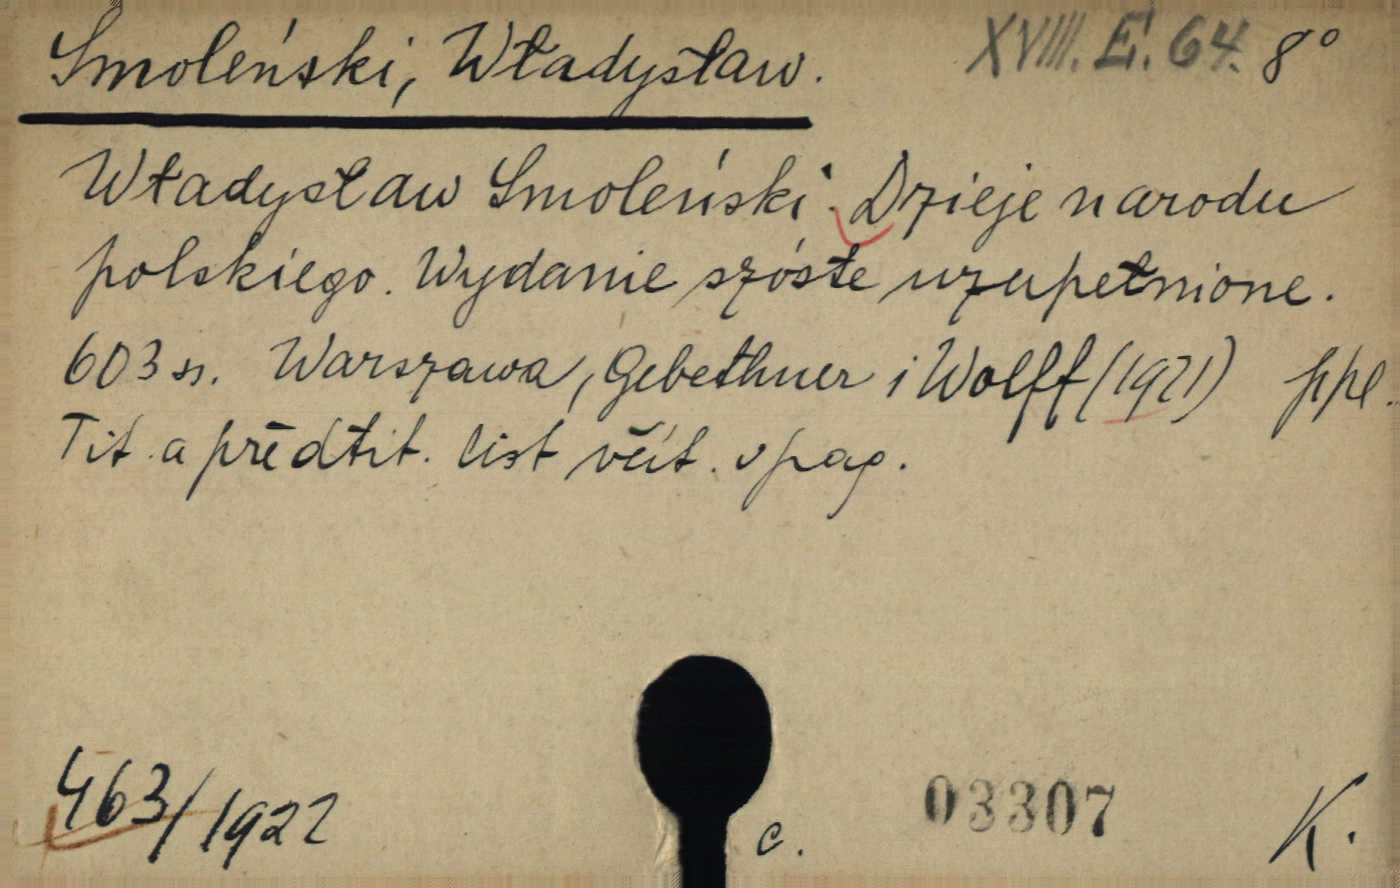 Smoleński, Władysław. XVIII. E. 64. 8°
Władysław Smoleński: Dzieje narodu
polskiego. Wydanie szóste uzupełnione.
603 s. Warszawa, Gebethner i Wolff (1921) ppl.
Tit. a předtit. list včít. v pag.
463/1922
c.
03307
K.